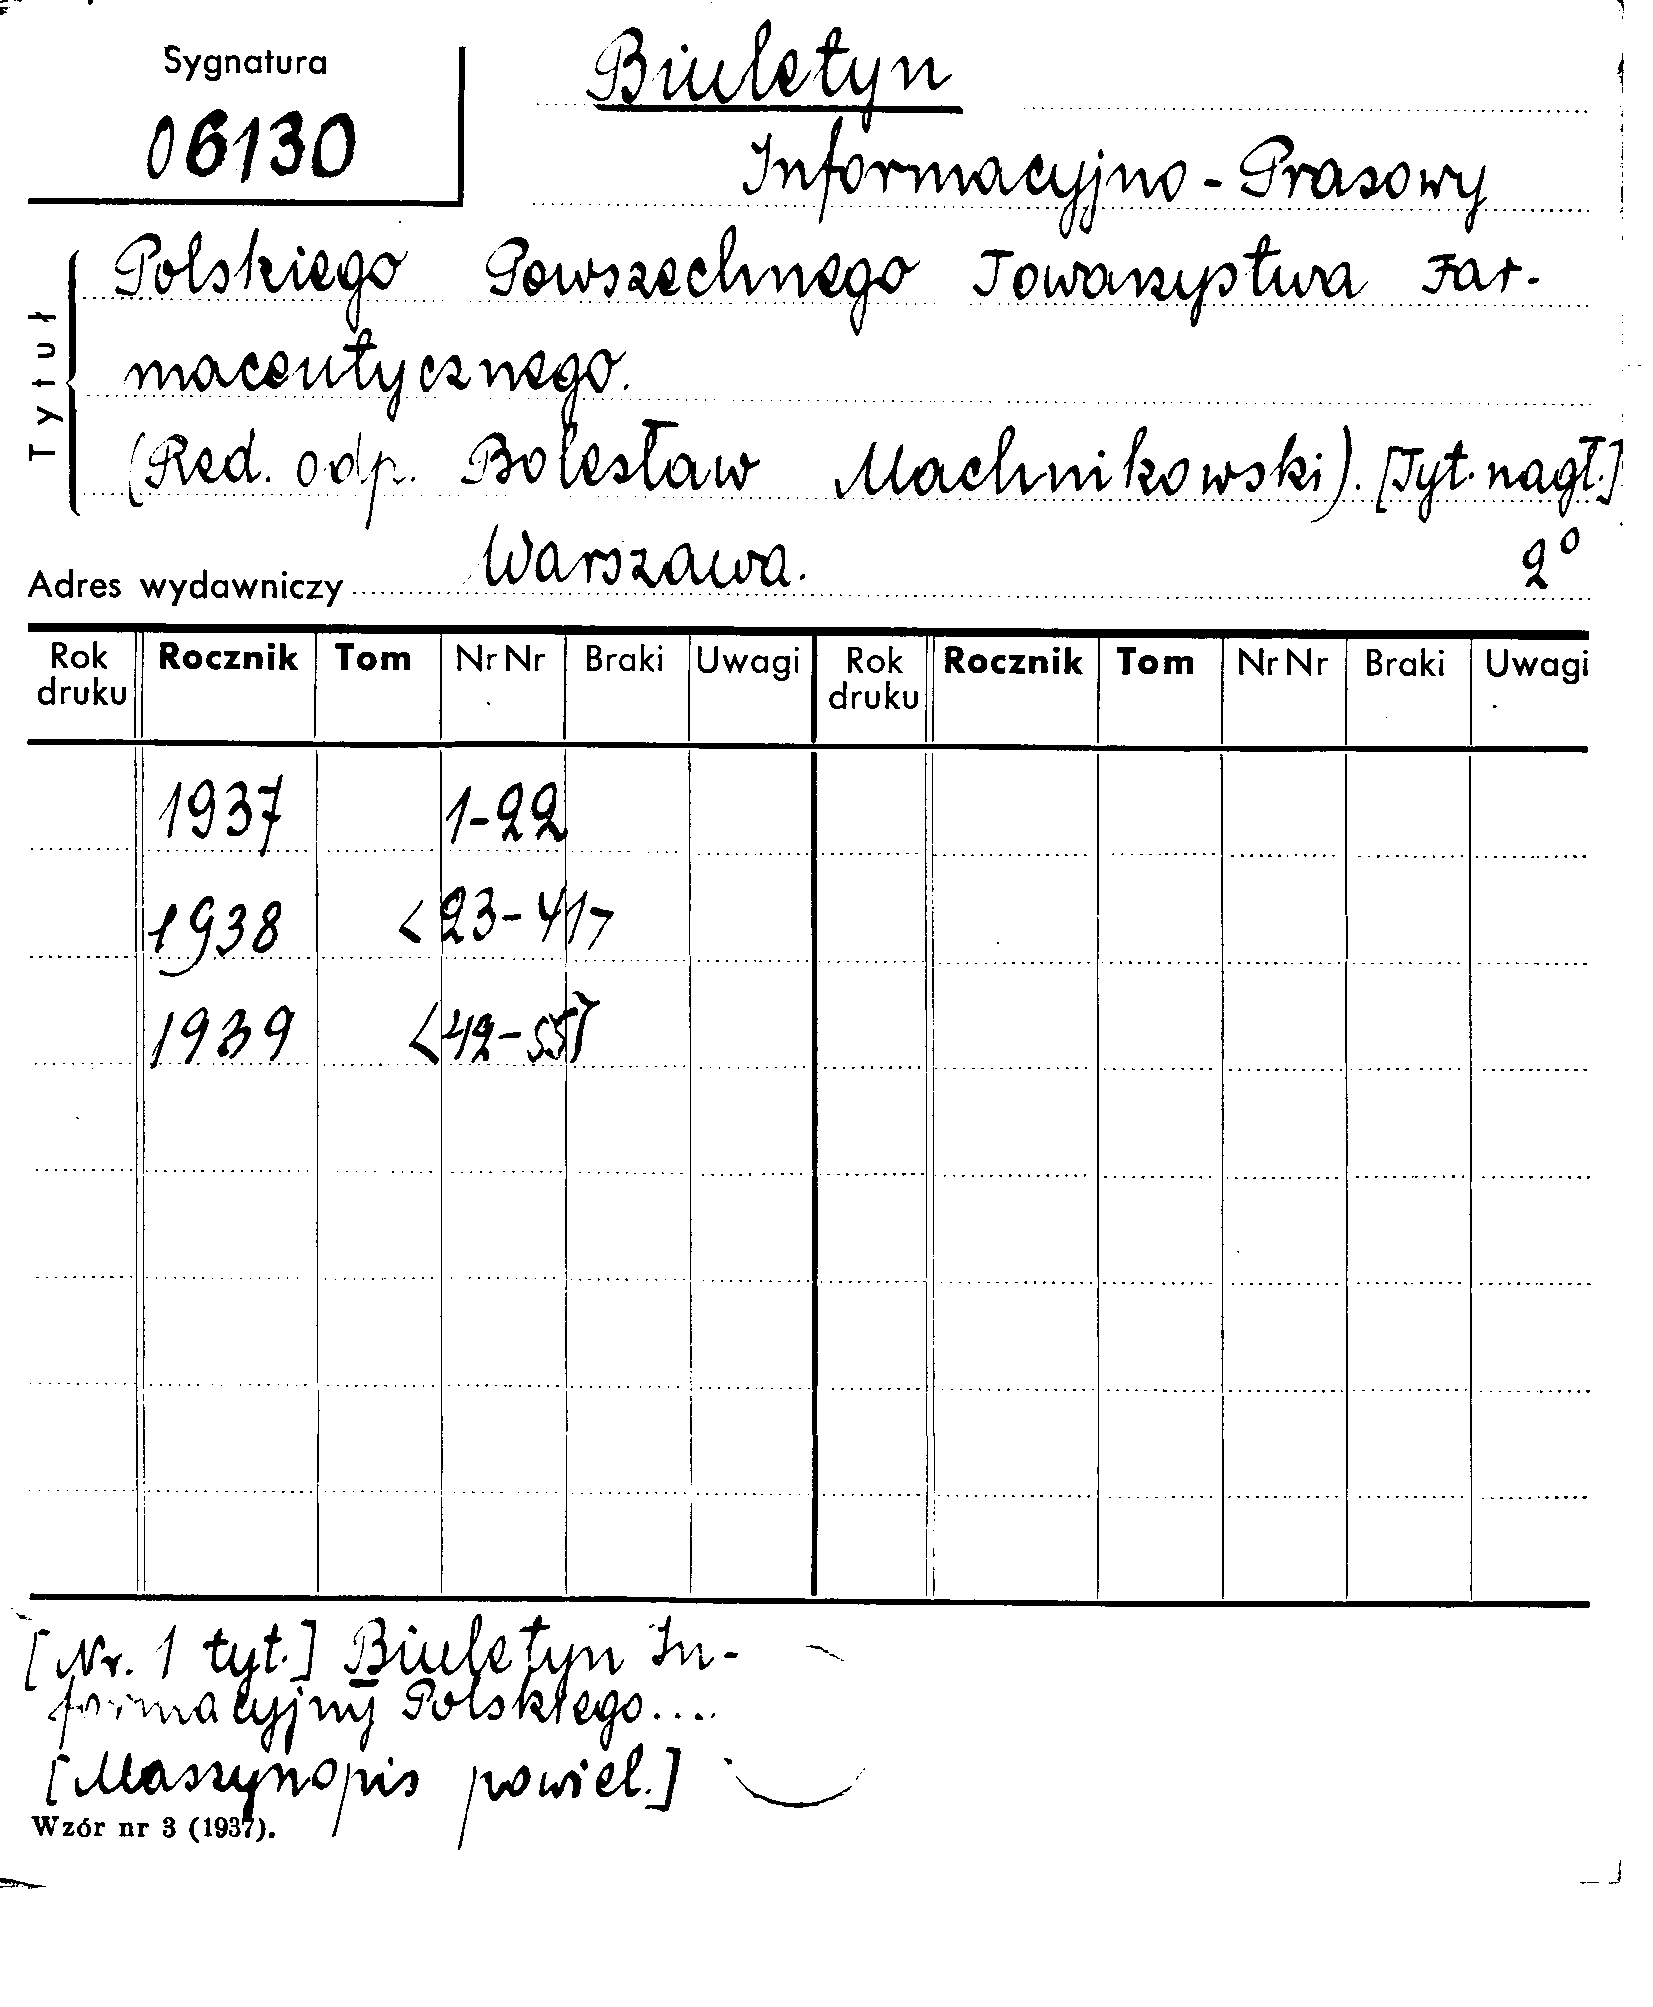 Sygnatura
06130
Biuletyn
Informacyjno - Prasowy
Tytuł
Polskiego Powszechnego Towarzystwa Far-
maceutycznego.
(Red. odp. Bolesław Machnikowski). [Tyt. nagł.]
Adres wydawniczy Warszawa. 2°
Rok druku Rocznik Tom Nr Nr Braki Uwagi Rok druku Rocznik Tom Nr Nr Braki Uwagi
1937 1-22
1938 <23-41>
1939 <42-55>
[Nr. 1 tyt.] Biuletyn In-
formacyjny Polskiego....
[Maszynopis powiel.]
Wzór nr 3 (1937).